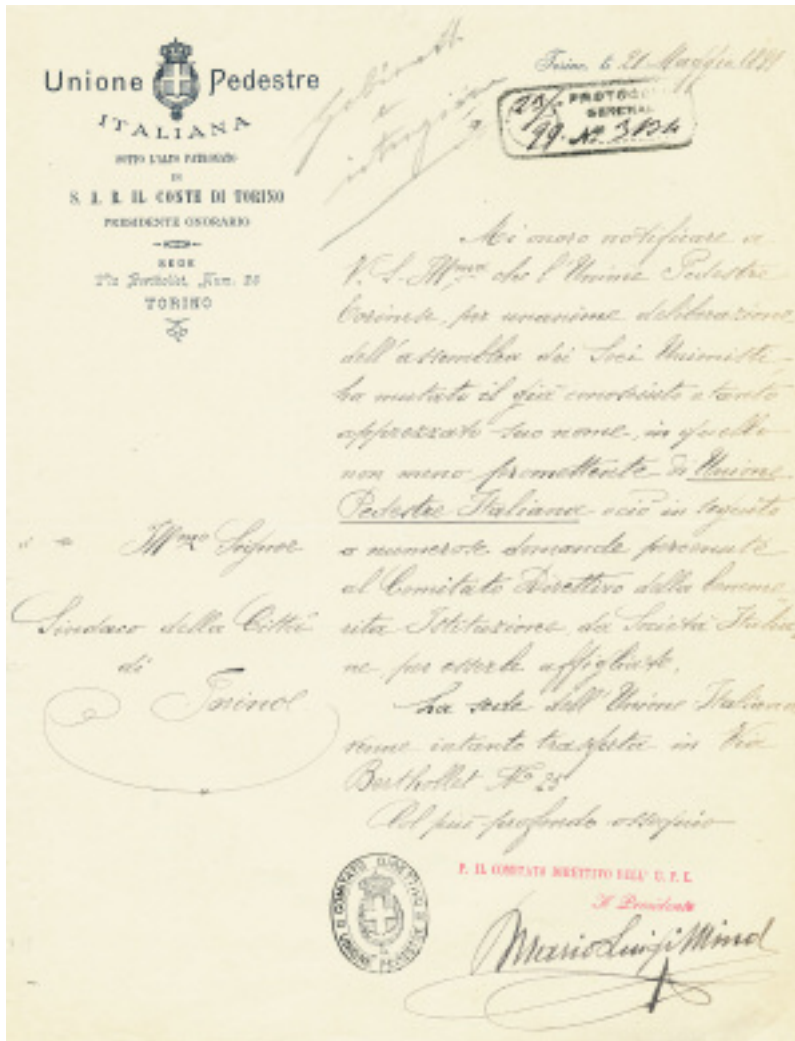 Unione Pedestre
ITALIANA
SOTTO L'ALTO PATRONATO
DI
S. A. R. IL CONTE DI TORINO
PRESIDENTE ONORARIO
SEDE
Via Berthollet, Num. 25
TORINO
Gabinetto
e
Torino, li 21 Maggio 1899
PROTOCOLLO
GENERALE
99. No. 3134
Mi onoro notificare a
V. S. Ill.ma che l'Unione Pedestre
Torinese, per unanime deliberazione
dell'assemblea dei Soci Unionisti,
ha mutato il già conosciuto e tanto
apprezzato suo nome, in quello
non meno promettente di Unione
Pedestre Italiana e ciò in seguito
a numerose domande pervenute
al Comitato Direttivo della beneme
rita Istituzione, da Società Italia
ne, per esserle affigliate.
La sede dell'Unione Italiana
venne intanto trasferta in Via
Berthollet No 25
Col più profondo ossequio
Ill.mo Signor
Sindaco della Città
di
Torino
P. IL COMITATO DIRETTIVO DELL' U. P. I.
Il Presidente
COMITATO DIRETTIVO
UNIONE PEDESTRE
Mario Luigi Mind